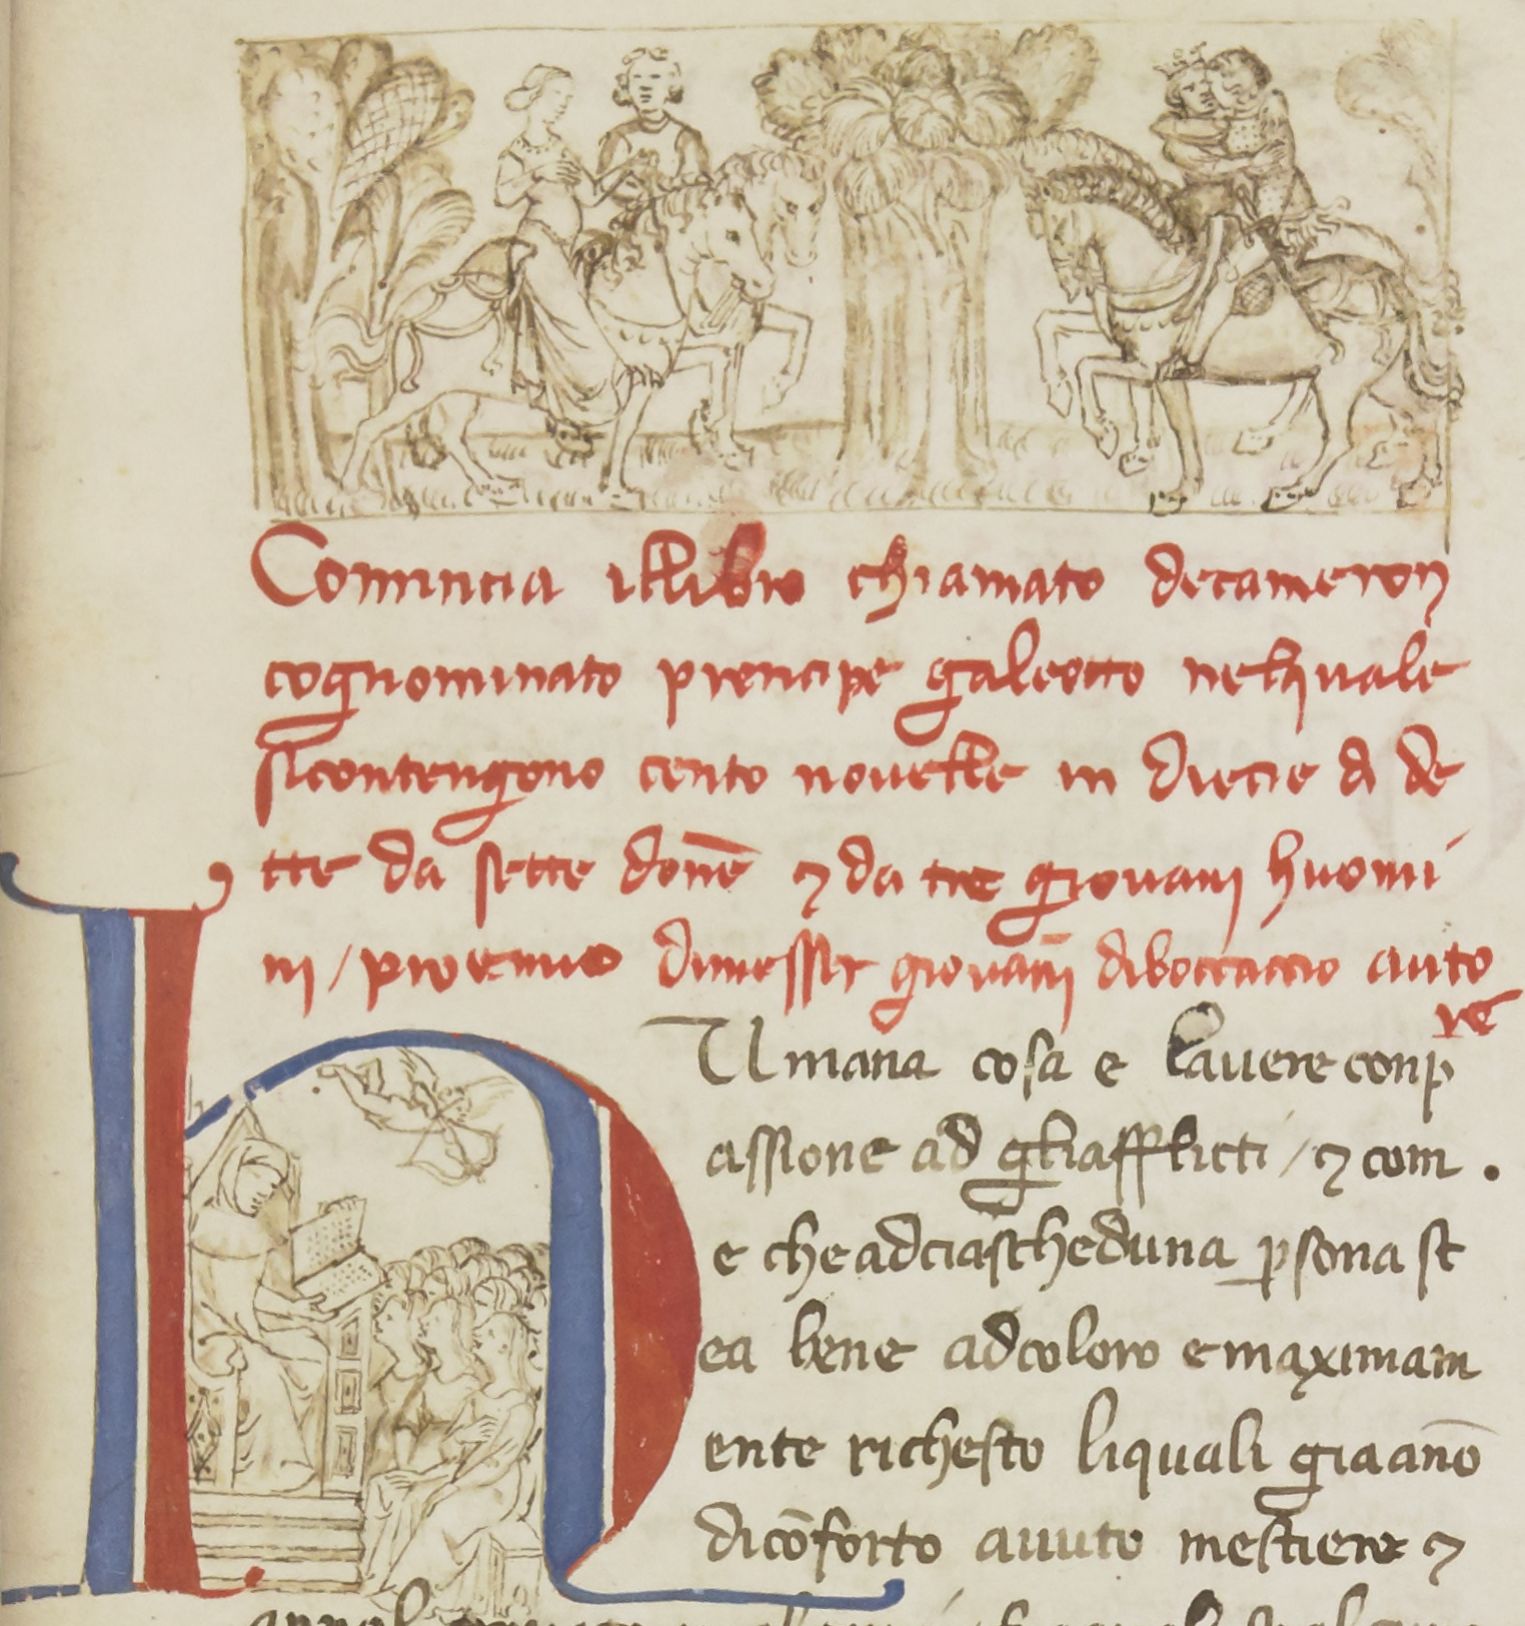 Comincia illibro chiamato decameron
cognominato prencipe galeotto nelquale
sicontengono cento nouelle in diecie dì de
tte da sette donē ⁊ da tre giouanj huomi
nj / proemio dimesser giouānj diboccaccio auto
re
HUmana cosa e lauere conp
assione ad gliafflicti / ⁊ com .
e che adciascheduna ꝑsona st
ea bene adcoloro e maximam
ente richesto liquali gia anō
dicōforto auuto mestiere ⁊